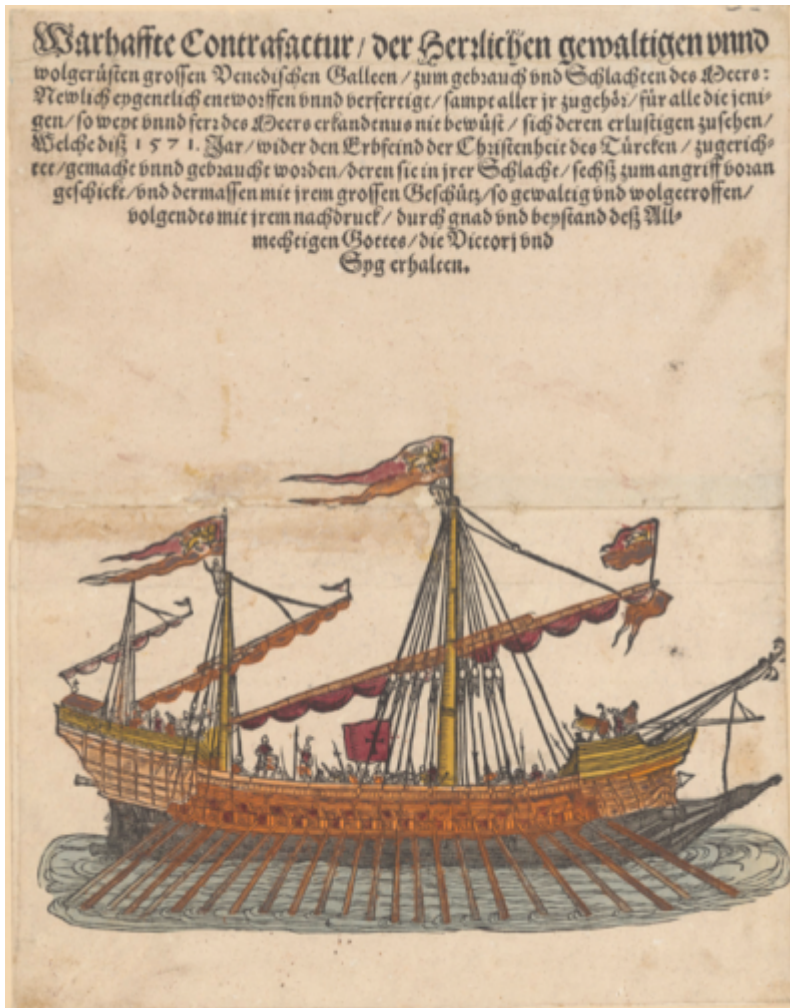 Warhaffte Contrafactur / der Herꝛlichen gewaltigen vnnd
wolgerüsten grossen Venedischen Galleen / zum gebꝛauch vnd Schlachten des Meers:
Newlich eygentlich entwoꝛffen vnnd verfertigt / sampt aller jr zugehöꝛ / für alle die jeni-
gen / so weyt vnnd ferꝛ des Meers erkandtnus nit bewüst / sich deren erlustigen zusehen /
Welche diß 1571. Jar / wider den Erbfeind der Christenheit des Türcken / zugerich-
tet / gemacht vnnd gebꝛaucht woꝛden / deren sie in jrer Schlacht / sechß zum angriff voꝛan
geschickt / vnd dermassen mit jrem grossen Geschütz / so gewaltig vnd wolgetroffen /
volgendts mit jrem nachdꝛuck / durch gnad vnd beystand deß All-
mechtigen Gottes / die Victoꝛj vnd
Syg erhalten.